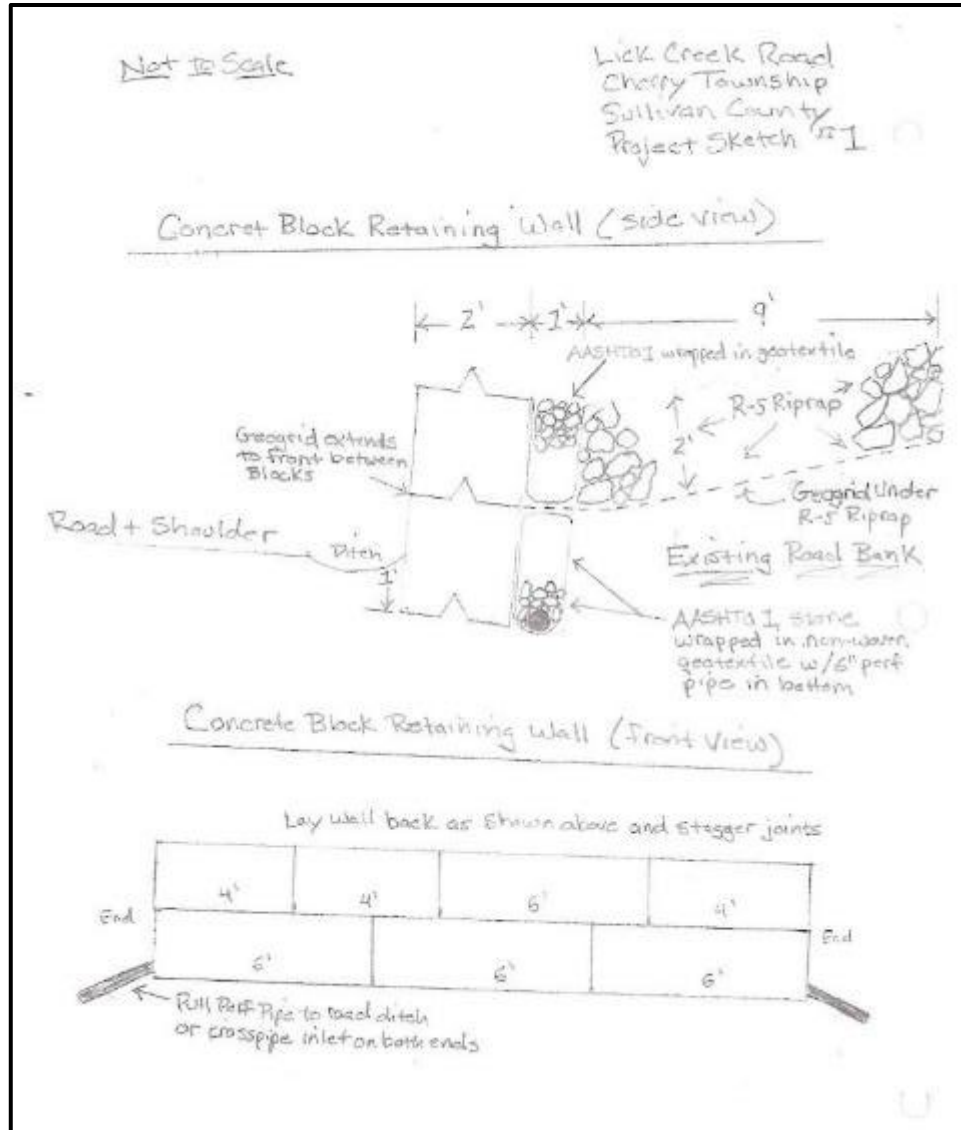 Not to Scale
Lick Creek Road
Cherry Township
Sullivan County
Project Sketch #1
Concret Block Retaining Wall (side view)
2'
1'
9'
AASHTO 1 wrapped in geotextile
R-5 Riprap
2'
Geogrid extends
to front between
Blocks
Geogrid Under
R-5 Riprap
Road + Shoulder
Ditch
1'
Existing Road Bank
AASHTO 1 stone
wrapped in non-woven
geotextile w/6" perf
pipe in bottom
Concrete Block Retaining Wall (front view)
Lay wall back as shown above and stagger joints
4'
4'
6'
4'
End
End
6'
6'
6'
Pull Perf Pipe to road ditch
or crosspipe inlet on both ends